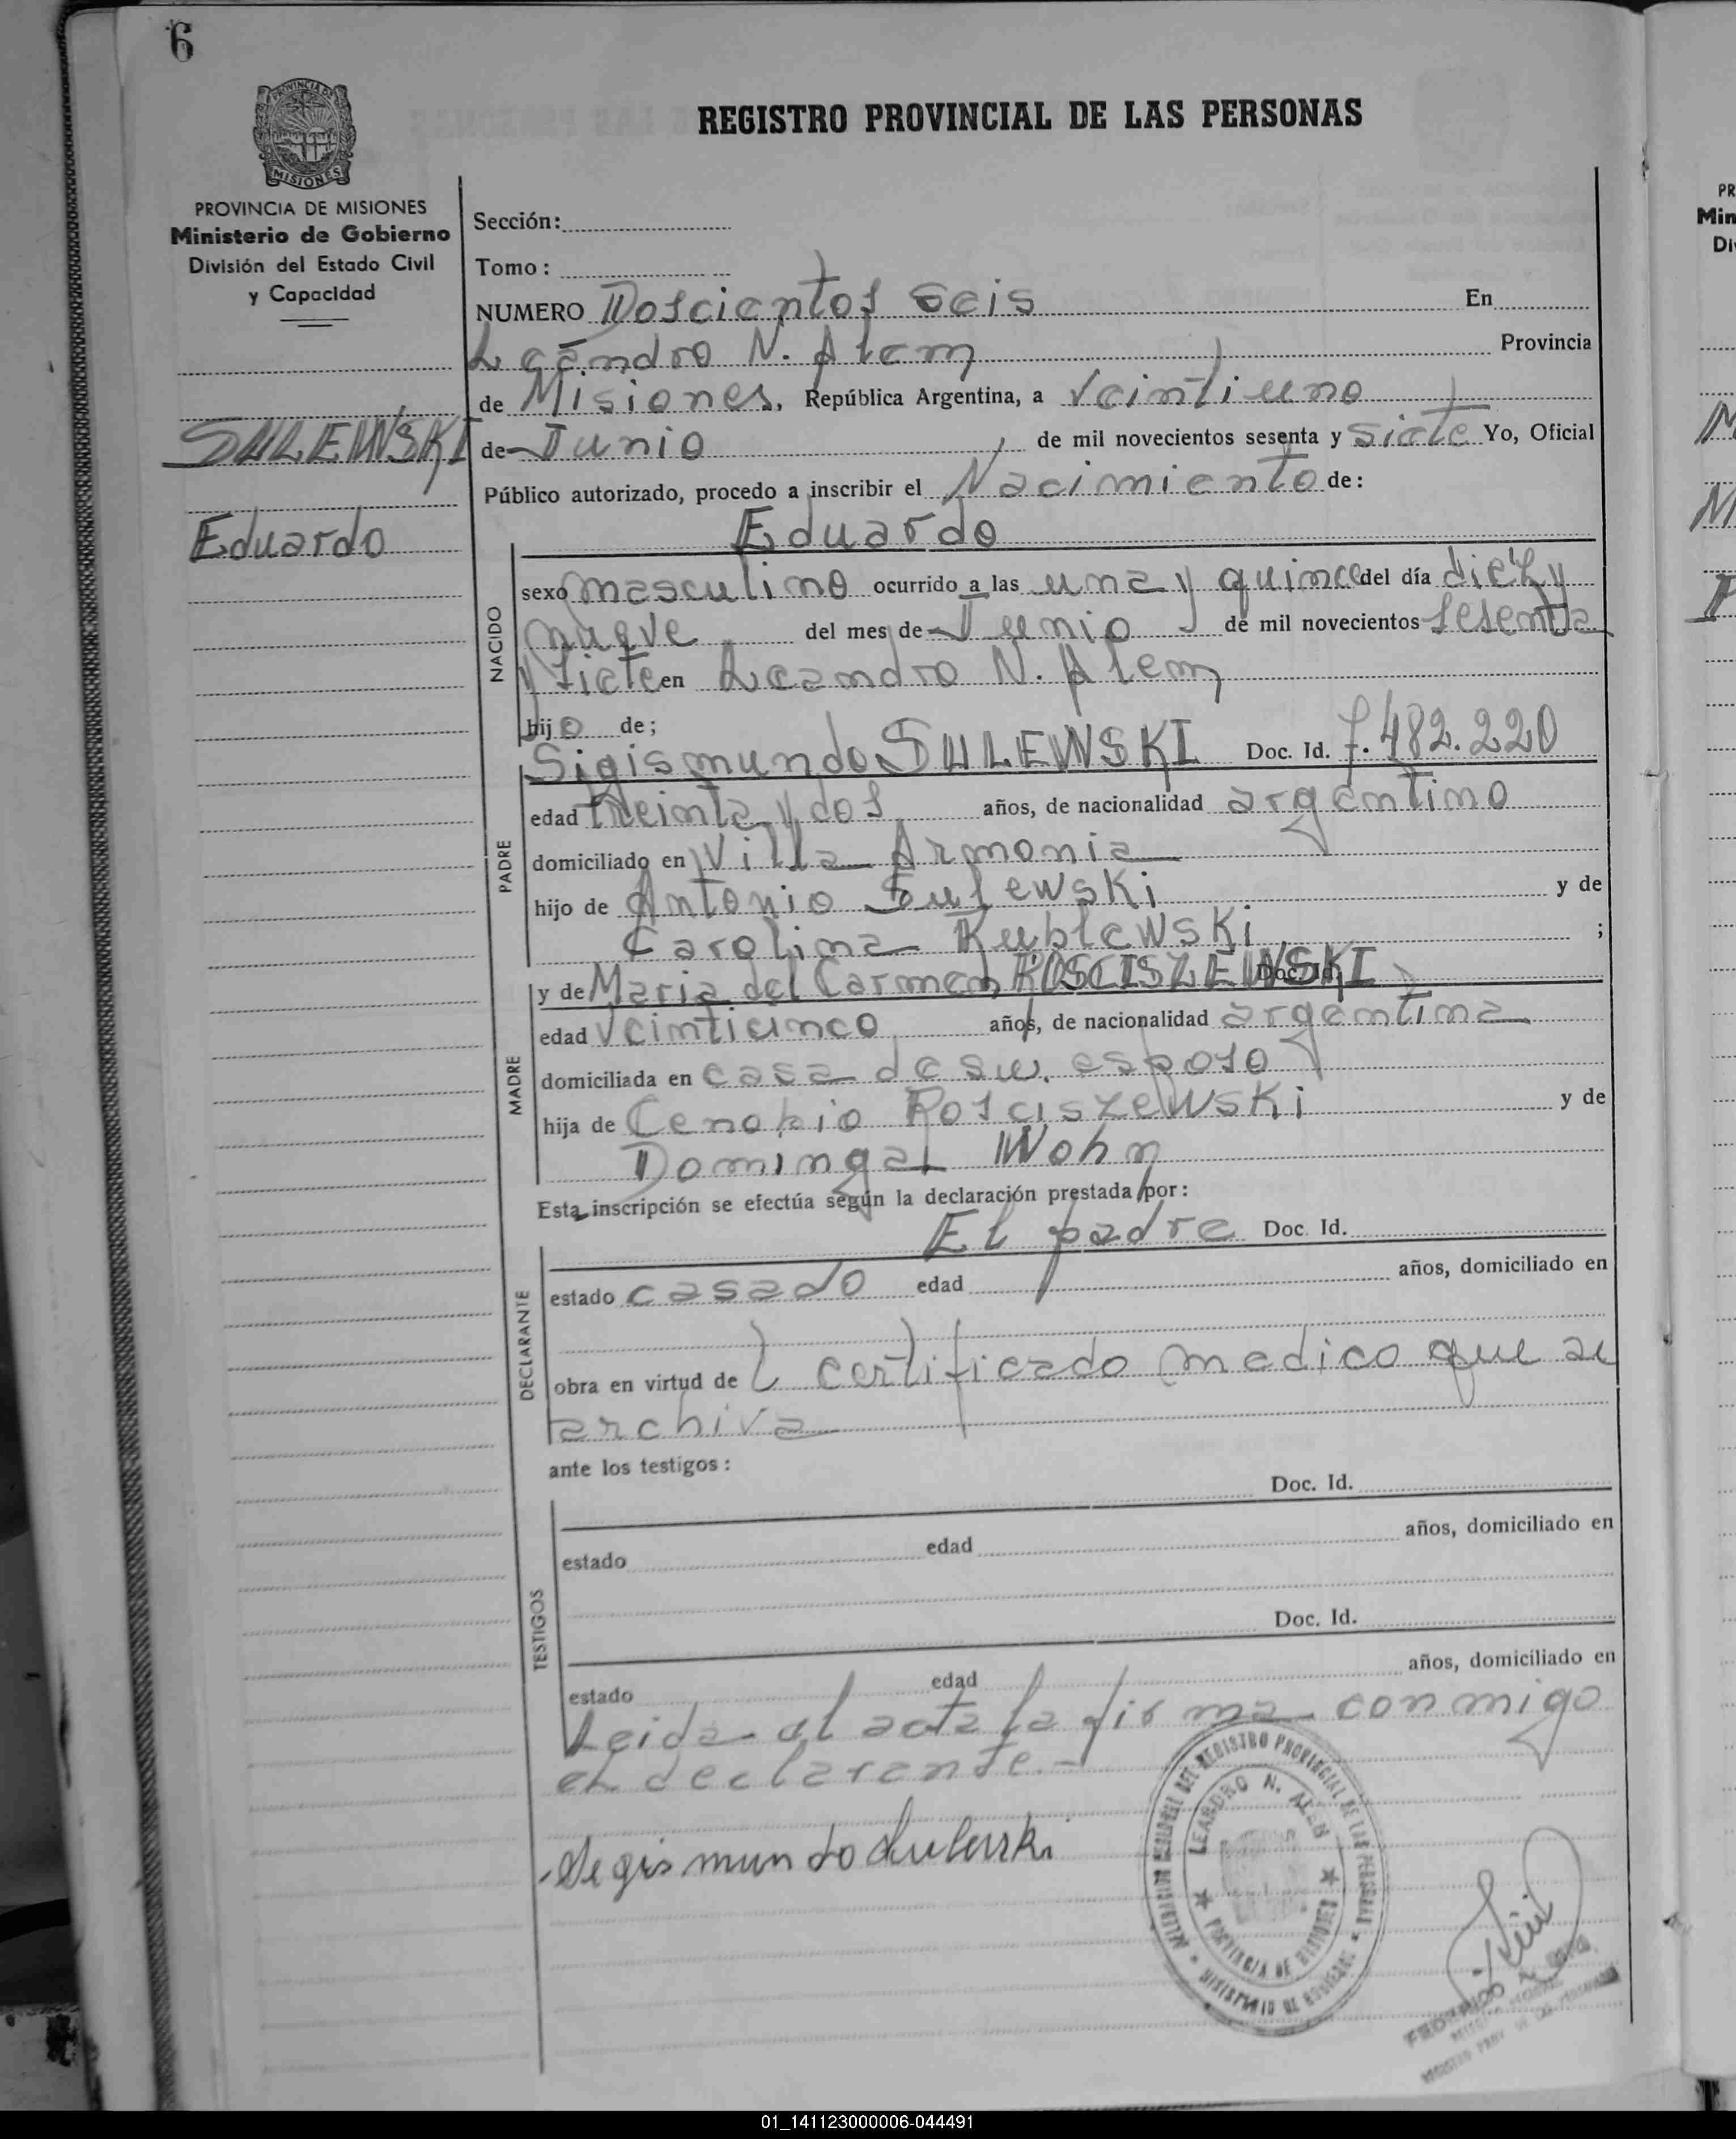 6
PROVINCIA DE
MISIONES
REGISTRO PROVINCIAL DE LAS PERSONAS
PROVINCIA DE MISIONES
Ministerio de Gobierno
División del Estado Civil
y Capacidad
SULEWSKI
Eduardo
Sección:
Tomo:
NUMERO Doscientos seis En
Leandro N. Alem Provincia
de Misiones, República Argentina, a veintiuno
de Junio de mil novecientos sesenta y siete Yo, Oficial
Público autorizado, procedo a inscribir el Nacimiento de:
Eduardo
NACIDO
sexo masculino ocurrido a las una y quince del día diez y
nueve del mes de Junio de mil novecientos sesenta
y siete en Leandro N. Alem
hijo de;
Sigismundo SULEWSKI Doc. Id. 7.482.220
PADRE
edad treinta y dos años, de nacionalidad argentino
domiciliado en Villa Armonia
hijo de Antonio Sulewski y de
Carolina Kublewski ;
y de Maria del Carmen ROSCISZEWSKI Doc. Id.
MADRE
edad veinticinco años, de nacionalidad argentina
domiciliada en casa de su esposo
hija de Cenobio Rosciszewski y de
Domingas Wohn
Esta inscripción se efectúa según la declaración prestada por:
El padre Doc. Id.
DECLARANTE
estado casado edad años, domiciliado en
obra en virtud de l certificado medico que se
archiva
ante los testigos:
Doc. Id.
TESTIGOS
estado edad años, domiciliado en
Doc. Id.
estado edad años, domiciliado en
Leida el acta la firma conmigo
el declarante.-
Segismundo Sulewski
REGISTRO PROVINCIAL DE LAS PERSONAS
LEANDRO N. ALEM
PROVINCIA DE MISIONES
MINISTERIO DE GOBIERNO
PR
Min
Di
01_141123000006-044491